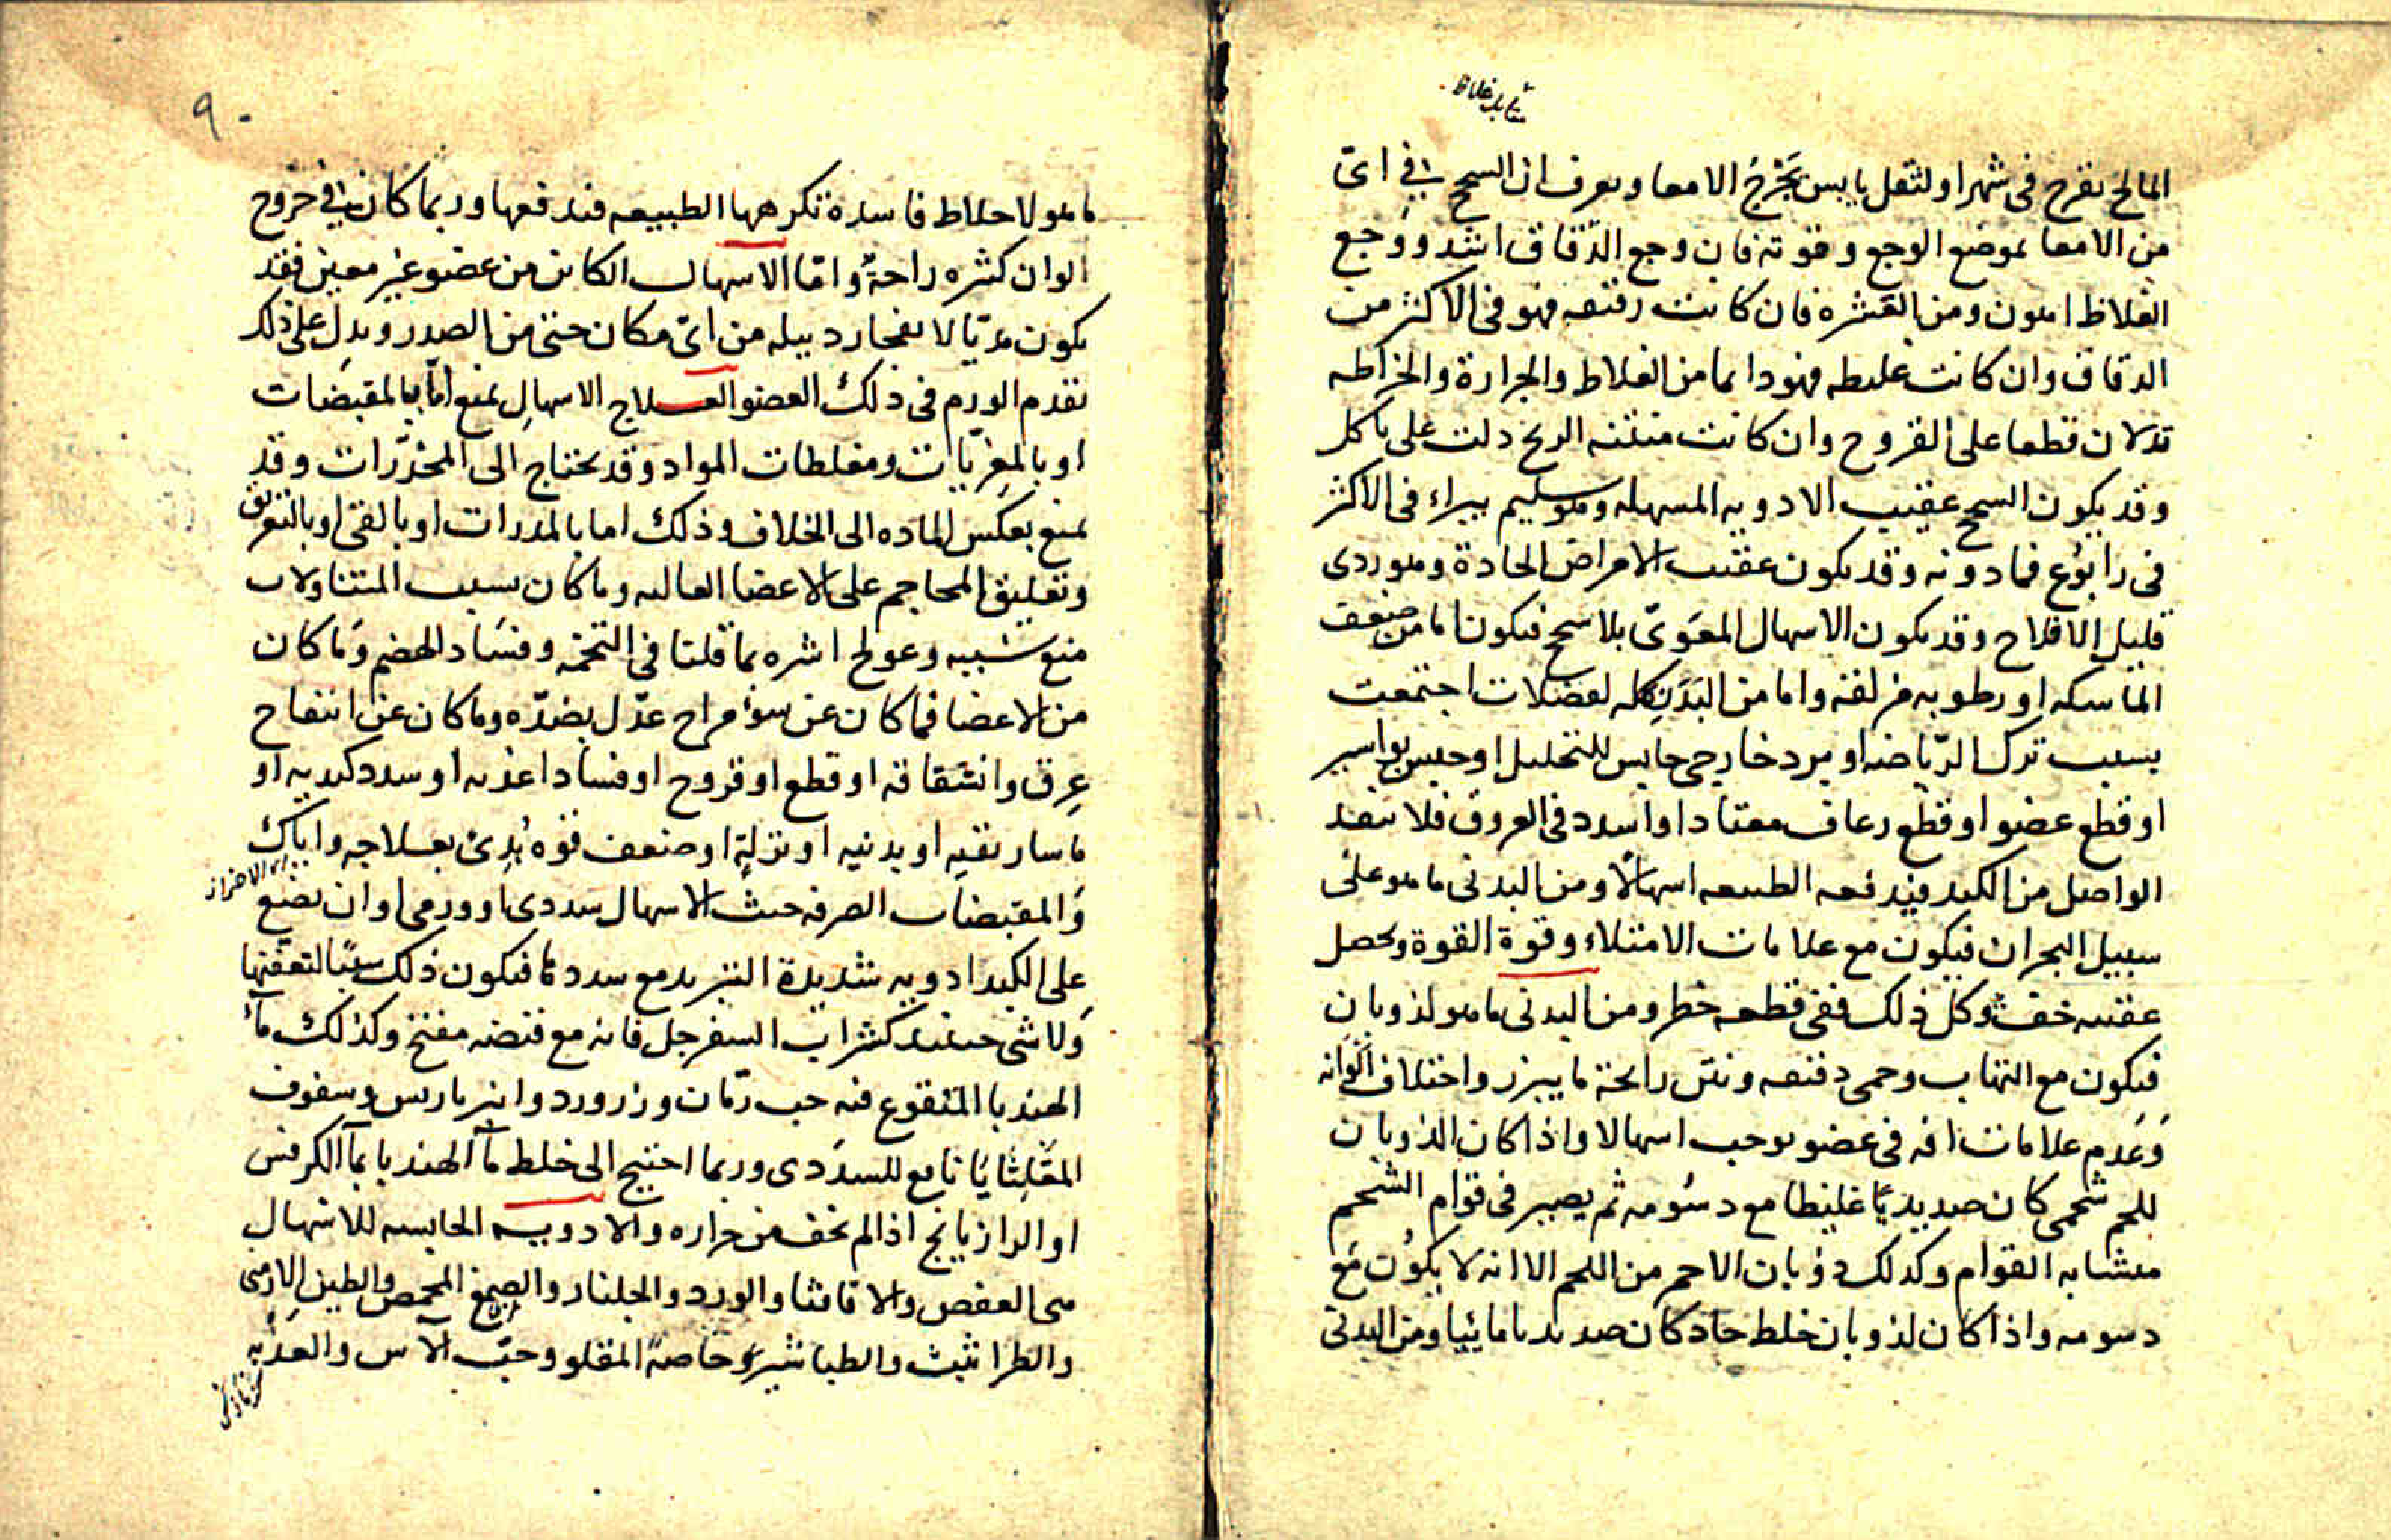 المالح تقرح فى شهر او لثفل يابس يجرح الامعا ويعرف ان السحج فى اىّ
من الامعا بموضع الوجع وقوته فان وجع الدّقاق اشد ووجع
الغلاظ اهون ومن القشره فان كانت رقيقه فهو فى الاكثر من
الدقاق وان كانت غليظه فهو دايما من الغلاظ والجرارة والخراطه
تدلان قطعا على القروح وان كانت منتنه الريح دلت على تاكل
وقد يكون السحج عقيب الادويه المسهله وهو سليم يبراء فى الاكثر
فى رابوع فما دونه وقد يكون عقيب الامراض الحادة وهو ردى
قليل الافلاح وقد يكون الاسهال المعوىّ بلا سحج فيكون اما من ضعف
الماسكه او رطوبه مزلقه واما من البدن كله لفضلات اجتمعت
بسبب ترك الرّياضه او برد خارجى حابس للتحليل او حبس بواسير
او قطع عضو او قطع رعاف معتاد او السدد فى العروق فلا ينفد
الواصل من الكبد فيدفعه الطبيعه اسهالاً ومن البدنى ما هو على
سبيل البحران فيكون مع علامات الامتلاء وقوة القوة ويحصل
عقيبه خف وكل ذلك ففى قطعه خطر ومن البدنى ما هو لذوبان
فيكون مع التهاب وحمى دقيقه ونتن رايحة ما يبرز واختلاف الوانه
وعدم علامات افه فى عضو يوجب اسهالا واذا كان الذوبان
للحم شحمى كان صديديّا غليظا مع دسومه ثم يصير فى قوام الشحم
متشابه القوام وكذلك ذوبان الاحمر من اللحم الا انه لا يكون مع
دسومه واذا كان لذوبان خلط حاد كان صديديا مائيا ومن البدنى
٩٠
ما هو لاخلاط فاسدة تكرهها الطبيعه فتدفعها وربما كان فى خروج
الوان كثيره راحةٌ وامّا الاسهال الكاين من عضو غير معين فقد
يكون مدّيّا لانفجار دبيله من اىّ مكان حتى من الصدر ويدل على ذلك
تقدم الورم فى ذلك العضو العلاج الاسهال يمنع امّا بالمقبضات
او بالمغريّات ومغلظات المواد وقد يحتاج الى المخدّرات وقد
يمنع بعكس الماده الى الخلاف وذلك اما بالمدرات او بالقى او بالتعريق
وتعليق المحاجم على الاعضا العاليه وما كان بسبب المتناولات
منع سببه وعولج اثره بما قلنا فى التخمه وفساد الهضم وما كان
من الاعضا فما كان عن سوء مزاج عدّل بضدّه وما كان عن انتفاخ
عرق وانشقاقه او قطع او قروح او فساد اغذيه او سدد كبديه او
ماساريقيه او بدنيه او نزلةٍ او ضعف قوه بُدئ بعلاجه واياك
والمقبضات الصرفه حيث الاسهال سددى او ورمى او ان تضع
على الكبد ادويه شديدة التبريد مع سدد فيكون ذلك سببًا لتعفنها
ولا شى حينئذ كشراب السفرجل فانه مع قبضه مفتح وكذلك مآء
الهندبا المنقوع فيه حب رمّان وزر ورد وانبرباريس وسفوف
المقلياثا نافع للسددى وربما احتيج الى خلط مآ الهندبا بمآ الكرفس
او الرازيانج اذا لم يخف من حراره والادويه الحابسه للاسهال
هى العفص والاقاقيا والورد والجلنار والصمغ المحمص والطين الارمنى
والطراثيث والطباشير وخاصةً المقلو وحبّ الآس والعذبه